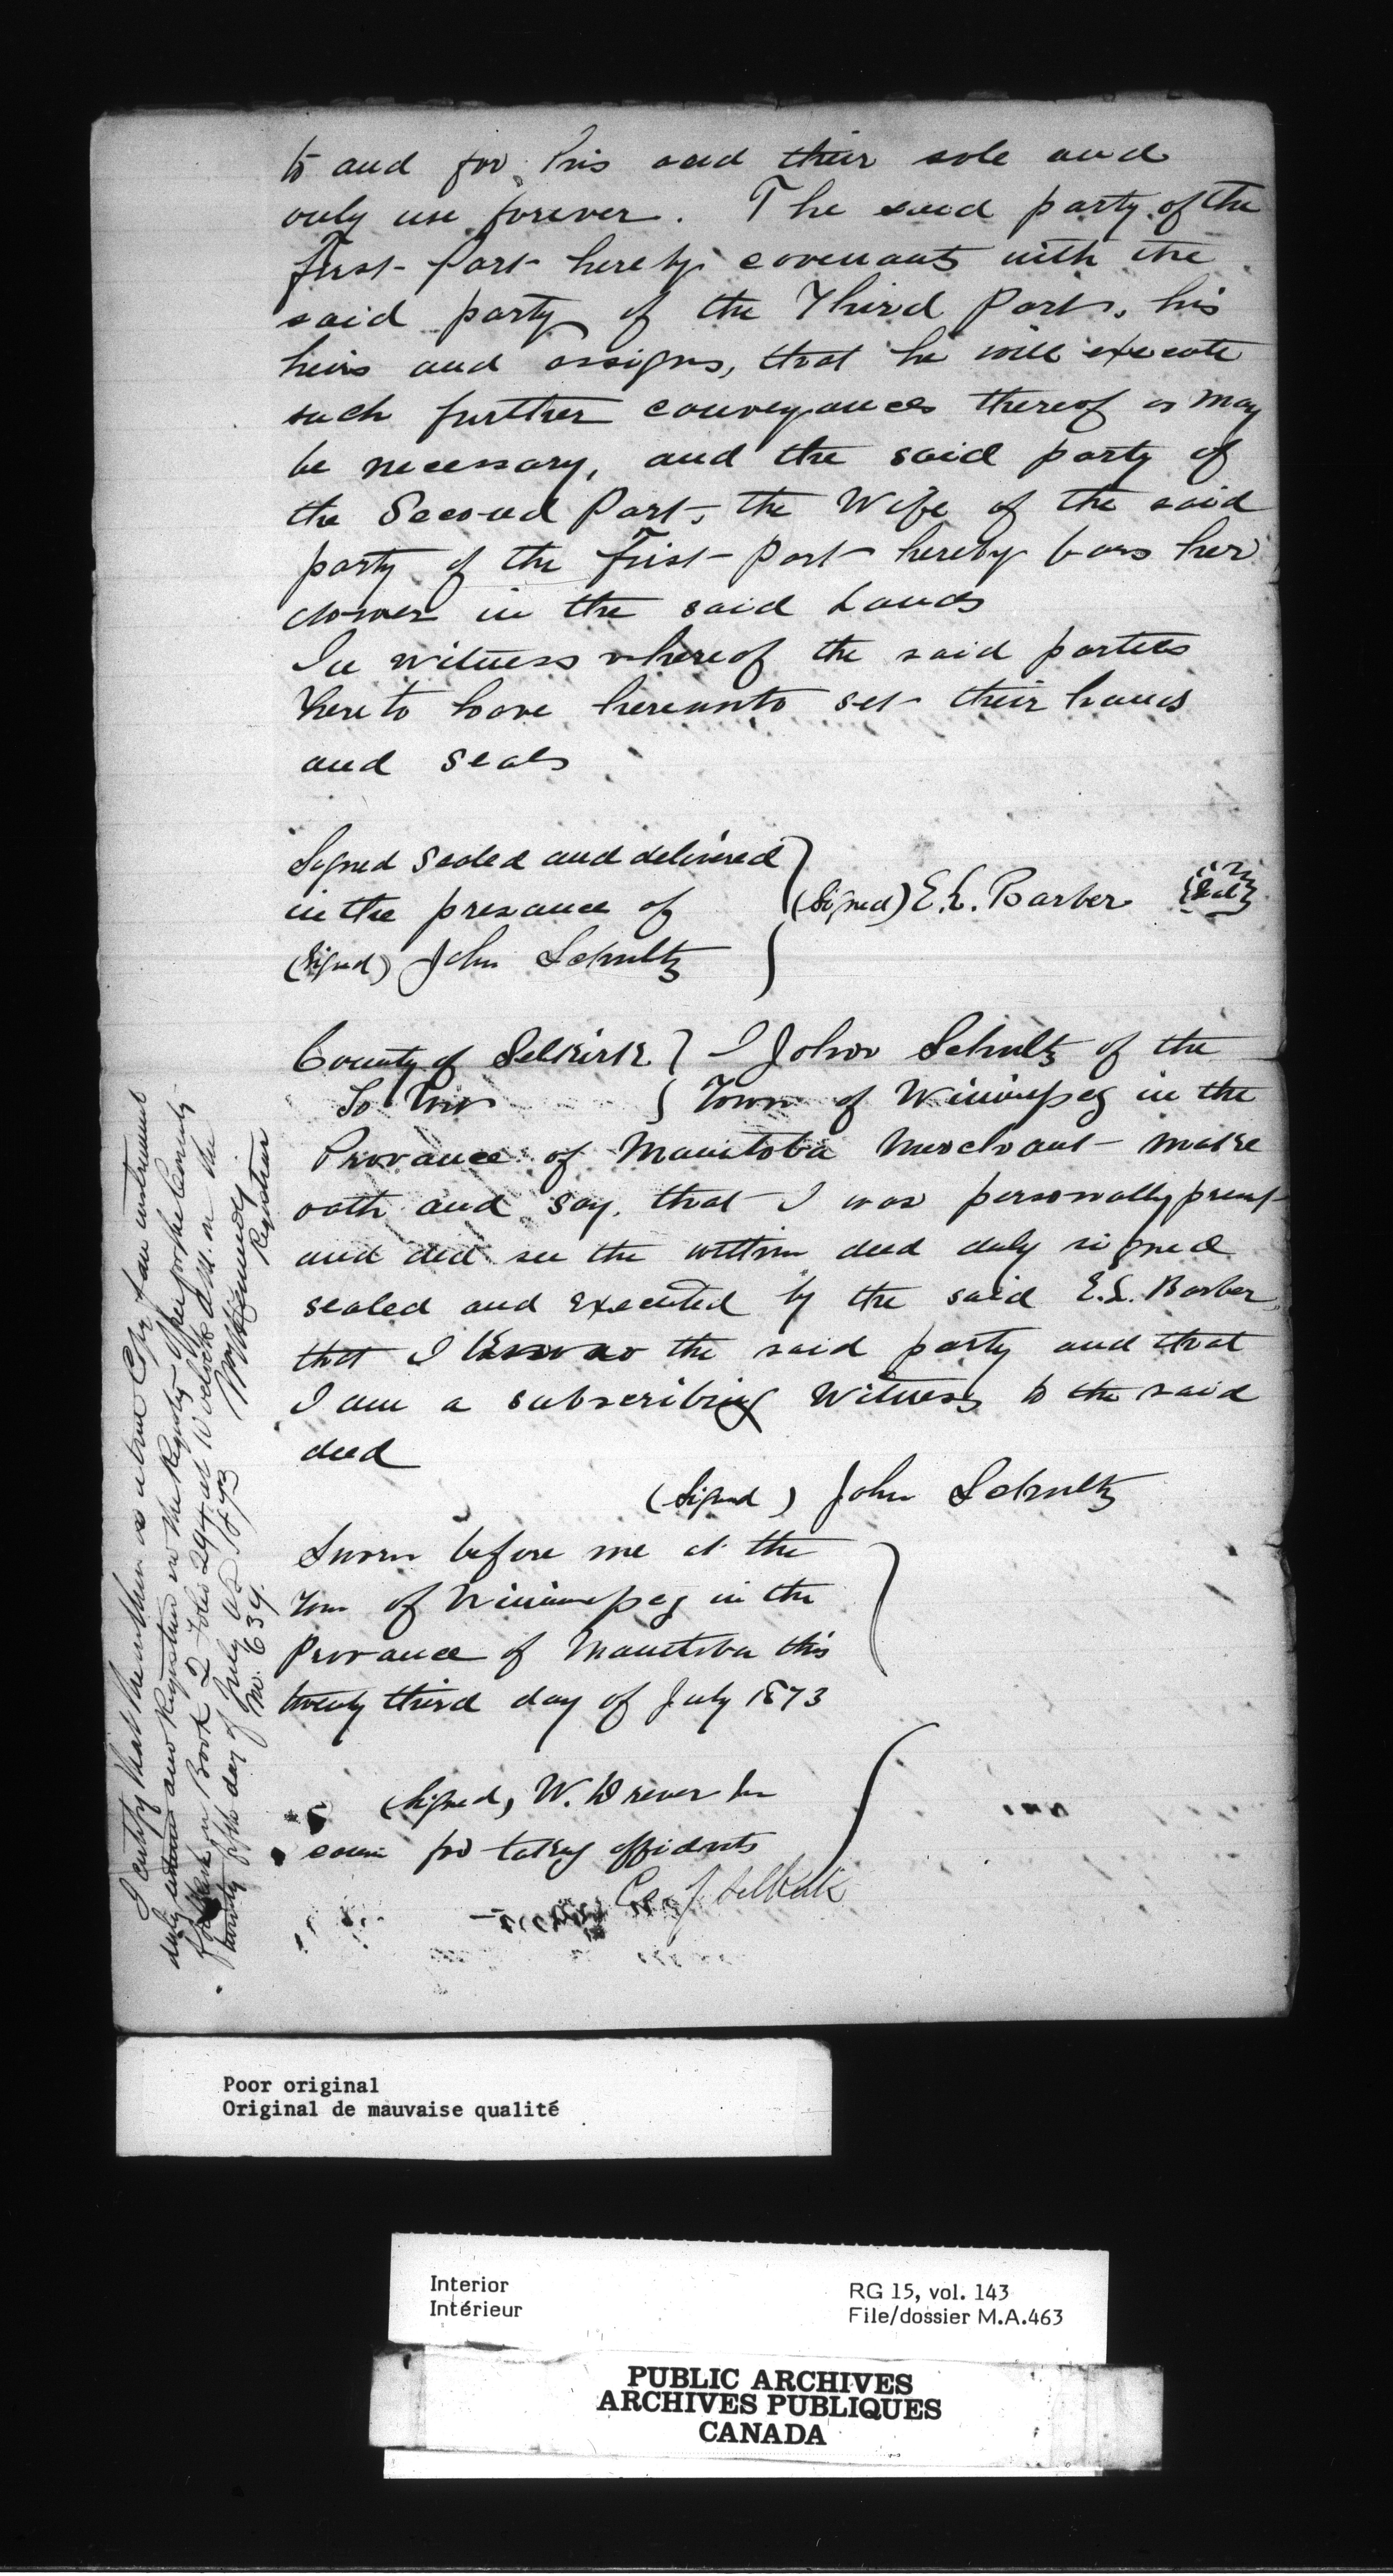 to and for his and their sole and
only use forever. The said party of the
First Part hereby covenants with the
said party of the Third Part, his
heirs and assigns, that he will execute
such further conveyances thereof as may
be necessary, and the said party of
the Second Part, the Wife of the said
party of the First Part hereby bars her
dower in the said Lands
In witness whereof the said parties
hereto have hereunto set their hands
and seals
Signed sealed and delivered
in the presance of
(Signed) John Schultz
(Signed) E.L. Barber
Seal
County of Selkirk } I John Schultz of the
To Wit } Town of Winnipeg in the
Provance of Manitoba Merchant make
oath and say, that I was personally present
and did see the within deed duly signed
sealed and executed by the said E.L. Barber,
that I know the said party and that
I am a subscribing Witness to the said
deed
(Signed) John Schultz
Sworn before me at the
Town of Winnipeg in the
Provance of Manitoba this
twenty third day of July 1873
(Signed, W. Drever Jr
comm for taking affidavits
Co of Selkirk
I certify that the within is a true Copy of an instrument
duly entered and Registered in the Registry Office for the County
of Selkirk in Book 2 Folio 294 at 10 o'clock A.M. on the
twenty fifth day of July AD 1873
No. 639.
Registrar
Poor original
Original de mauvaise qualité
Interior
Intérieur
RG 15, vol. 143
File/dossier M.A.463
PUBLIC ARCHIVES
ARCHIVES PUBLIQUES
CANADA